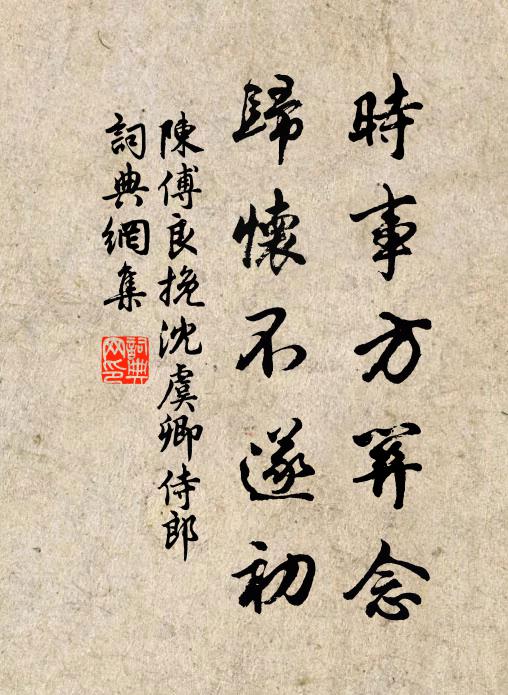 時事方關念
歸懷不遂初
陳傅良挽沈虞卿侍郎
詞典網集
詞典網印